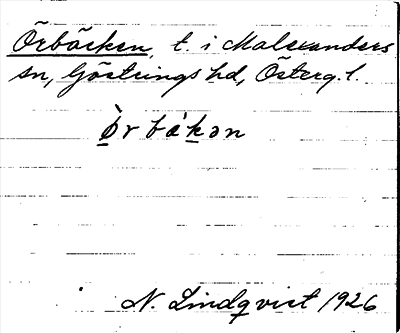 Örbäcken, t. i Malexanders
sn, Göstrings hd, Österg. l.
ö̀rbä́kən
N. Lindqvist 1926